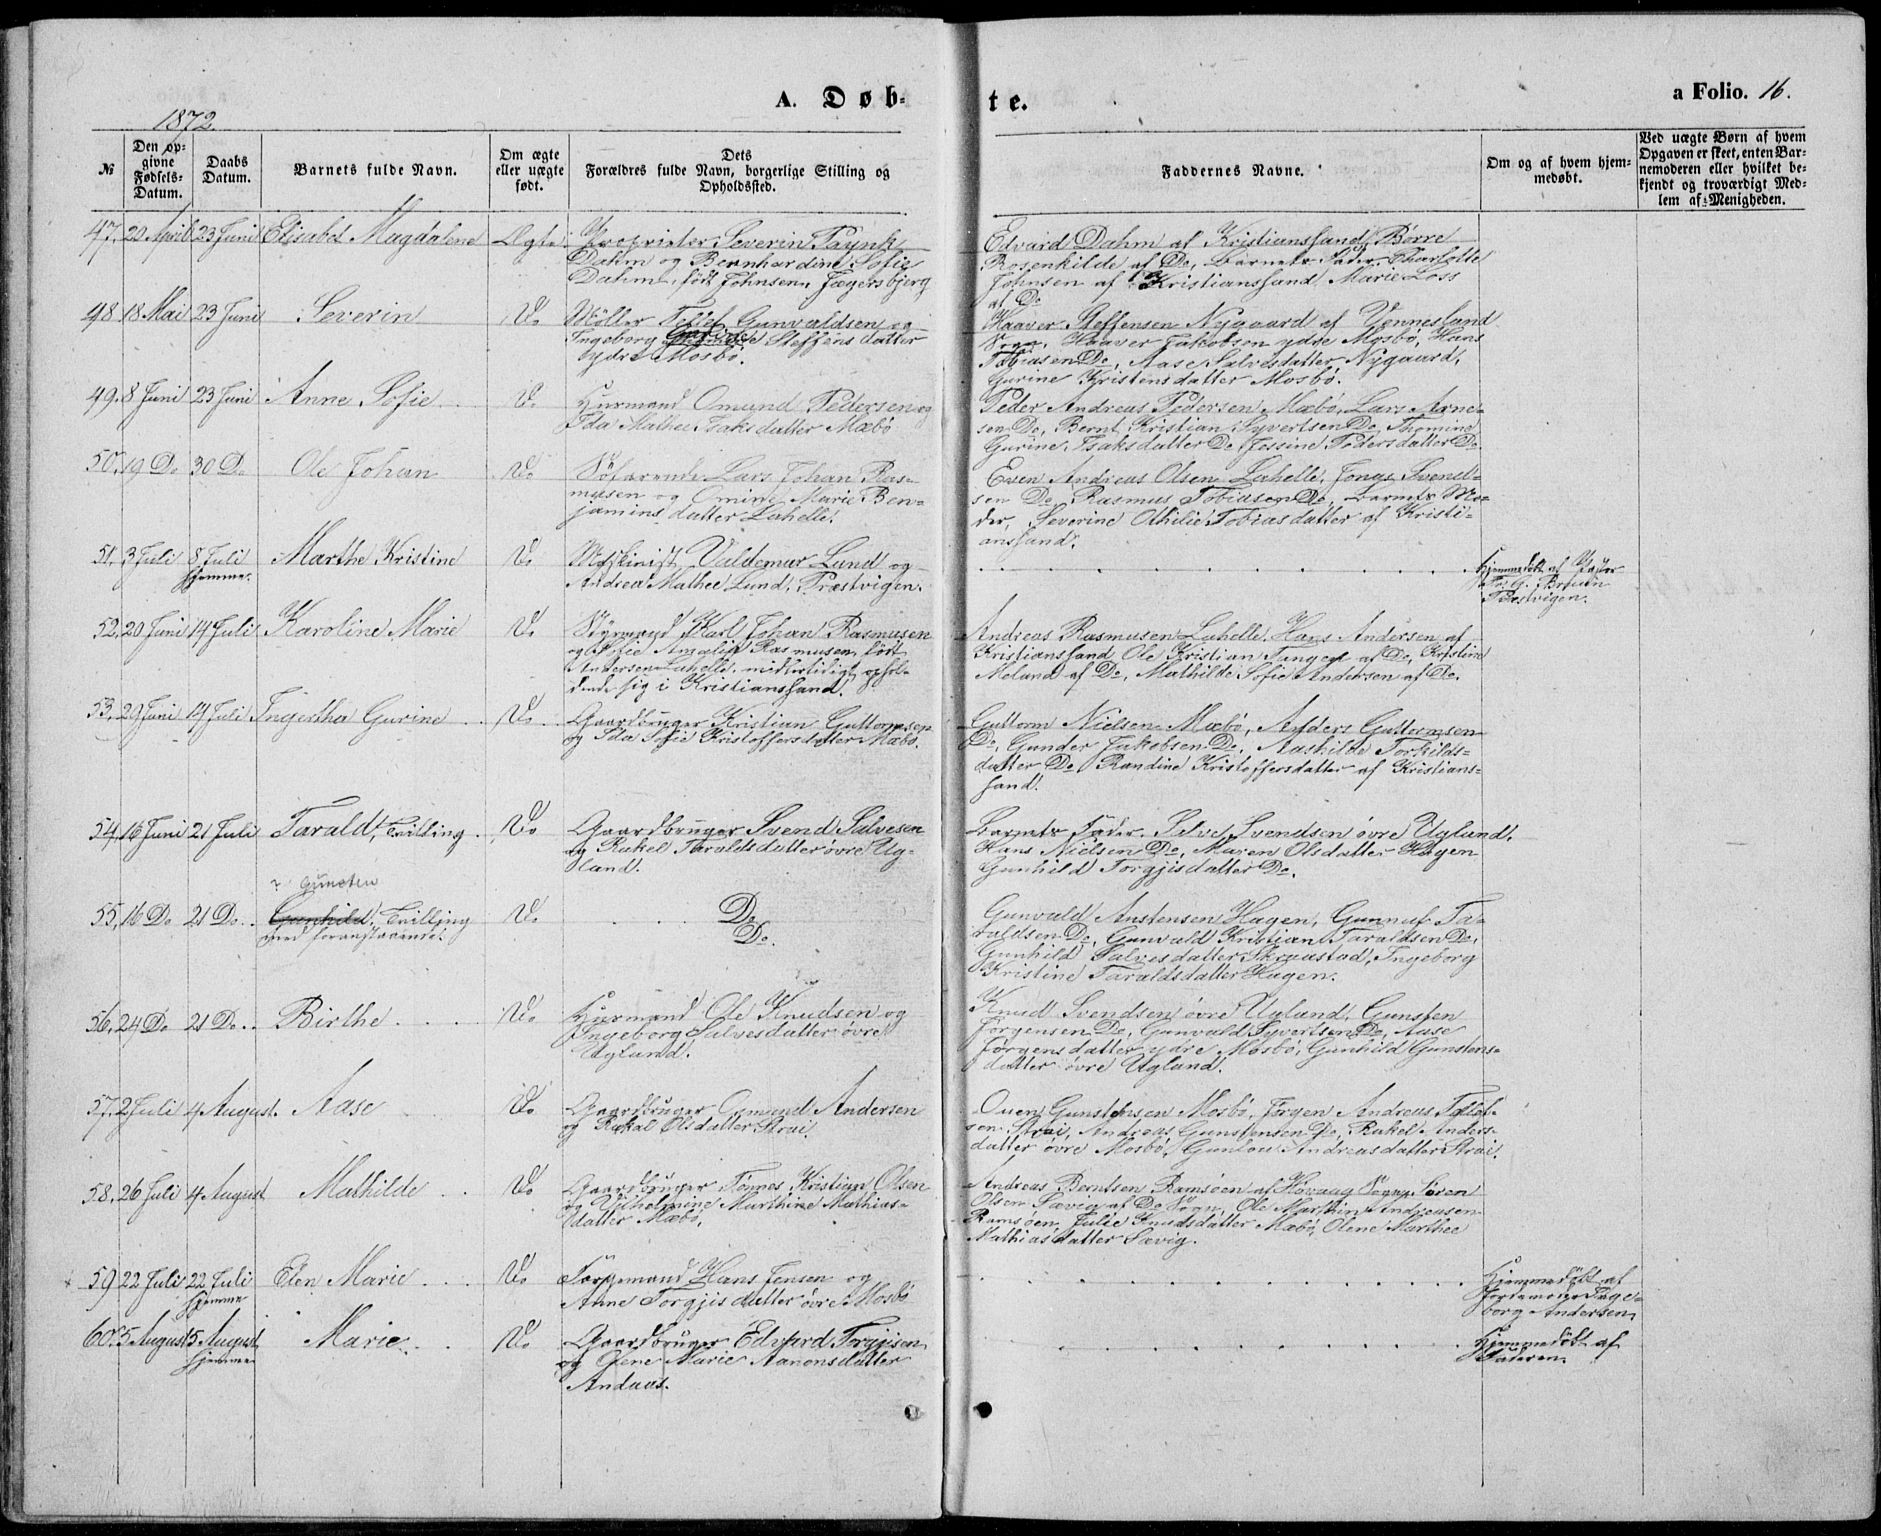 A. Døb-
te.
a Folio. 16.
1872.
№
Den op-
givne
Fødsels-
Datum.
Daabs
Datum.
Barnets fulde Navn.
Om ægte
eller uægte
født.
Dets
Forældres fulde Navn, borgerlige Stilling og
Opholdssted.
Faddernes Navne.
Om og af hvem hjem-
medøbt.
Ved uægte Børn af hvem
Opgaven er skeet, enten Bar-
nemoderen eller hvilket be-
kjendt og troværdigt Med-
lem af Menigheden.
47. 20 April 23 Juni Elisabet Magdalene Ægte
Proprietær Severin Paynk
Dahm og Bernhardine Sofie
Dahm, født Johnsen, Jægersbjerg
Edvard Dahm af Kristianssand, Børre
Rosenkilde af Do, Barnets Fader, Charlotte
Johnsen af Kristianssand, Marie Loss
af Do
48 18 Mai 23 Juni Severin Do
Møller Tellef Gunvaldsen og
Ingeborg Steffensdatter
ydre Mosbø.
Haaver Steffensen Nygaard af Vennesland
Sogn, Haaver Jakobsen ydre Mosbø, Hans
Tobiasen Do, Aase Salvesdatter Nygaard,
Gurine Kristensdatter Mosbø.
49. 8 Juni 23 Juni Anne Sofie Do
Husmand Omund Pedersen og
Ida Mathea Isaksdatter Mæbø
Peder Andreas Pedersen Mæbø, Lars Arne-
sen Do, Bernt Kristian Syvertsen Do, Thomine
Gurine Isaksdatter Do, Jessine Pedersdatter Do
50. 19 Do 30 Do Ole Johan Do
Søfarende Lars Johan Ras-
musen og Omine Marie Ben-
jaminsdatter Lahelle.
Even Andreas Olsen Lahelle, Jonas Svend-
sen Do, Rasmus Tobiasen Do, Barnets Mo-
der, Severine Othilie Tobiasdatter af Kristi-
anssand.
51. 3 Juli 8 Juli Marthe Kristine Do
hjemme.
Maskinist Valdemar Lund og
Andrea Mathea Lund, Præstvigen.
Hjemmedøbt af Pastor
Fr. G. Bruun
Præstvigen.
52. 20 Juni 14 Juli Karoline Marie Do
Styrmand Karl Johan Rasmusen
og Sofie Amalie Rasmusen, født
Andersen Lahelle, midlertidigt ophol-
dende sig i Kristianssand.
Andreas Rasmusen Lahelle, Hans Andersen af
Kristianssand, Ole Kristian Tangen af Do, Kristine
Meland af Do, Mathilde Sofie Andersen af Do.
53. 29 Juni 14 Juli Ingertha Gurine Do
Gaardbruger Kristian Guttormsen
og Ida Sofie Kristoffersdatter Mæbø.
Guttorm Nielsen Mæbø, Anders Guttormsen
Do, Gunder Jakobsen Do, Aashilde Torkilds-
datter Do, Randine Kristoffersdatter af Kristians-
sand.
54. 16 Juni 21 Juli Tarald, Tvilling Do
Gaardbruger Svend Salvesen
og Rakel Taraldsdatter øvre Ug-
land.
Barnets Fader, Salve Svendsen øvre Ugland,
Hans Nielsen Do, Maren Olsdatter Hagen
Gunhild Torgjisdatter Do.
Gunsten
55. 16 Do 21 Do Gunhild, Tvilling Do Do
med foranstaaende. Do.
Gunvald Anstensen Hagen, Gunnuf Ta-
raldsen Do, Gunvald Kristian Taraldsen Do,
Gunhild Salvesdatter Skraastad, Ingeborg
Kristine Taraldsdatter Hagen.
56. 24 Do 21 Do Birthe Do
Husmand Ole Knudsen og
Ingeborg Salvesdatter øvre
Ugland.
Knud Svendsen øvre Ugland, Gunsten
Jørgensen Do, Gunvald Syvertsen Do, Aase
Jørgensdatter ydre Mosbø, Gunhild Gunstens-
datter øvre Ugland.
57. 2 Juli 4 August. Aase Do
Gaardbruger Osmund Andersen
og Rakel Olsdatter Strai.
Ouen Gunstensen Mosbø, Jørgen Andreas Tellef-
sen Strai, Andreas Gunstensen Do, Rakel Anders-
datter øvre Mosbø, Gunlou Andreasdatter Strai.
58. 26 Juli 4 August Mathilde Do
Gaardbruger Tønnes Kristian Olsen
og Vilhelmine Marthine Mathias-
datter Mæbø.
Andreas Berntsen Ramsøen af Høvaag Sogn, Søren
Olsen Sævig af Do Sogn, Ole Marthin Andreasen
Ramsøen, Julie Knudsdatter Mæbø, Olene Marthea
Mathiasdatter Sævig.
59 22 Juli 22 Juli Elen Marie Do
hjemme
Torgemand Hans Jensen og
Anne Torgjisdatter øvre Mosbø
Hjemmedøbt af
Jordemoder Inge-
borg Andersen
60. 5 August 5 August Marie Do
hjemme
Gaardbruger Edvard Torgjisen
og Olene Marie Aanonsdatter
Andaas.
Hjemmedøbt af
Faderen